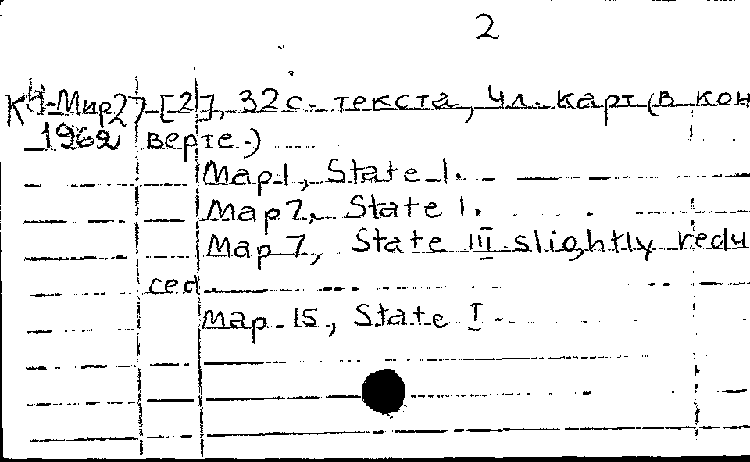 2
К4-Мир27 [2], 32 с. текста, 4 л. карт (в кон
1962 верте.)
Map 1, State 1.
Map 2, State 1.
Map 7, State III slightly redu
ced.
Map 15, State I